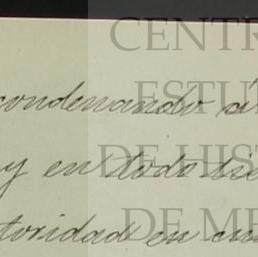 CENTR
ESTU
DE HIST
DE ME
condenando á
y en todo
toridad en